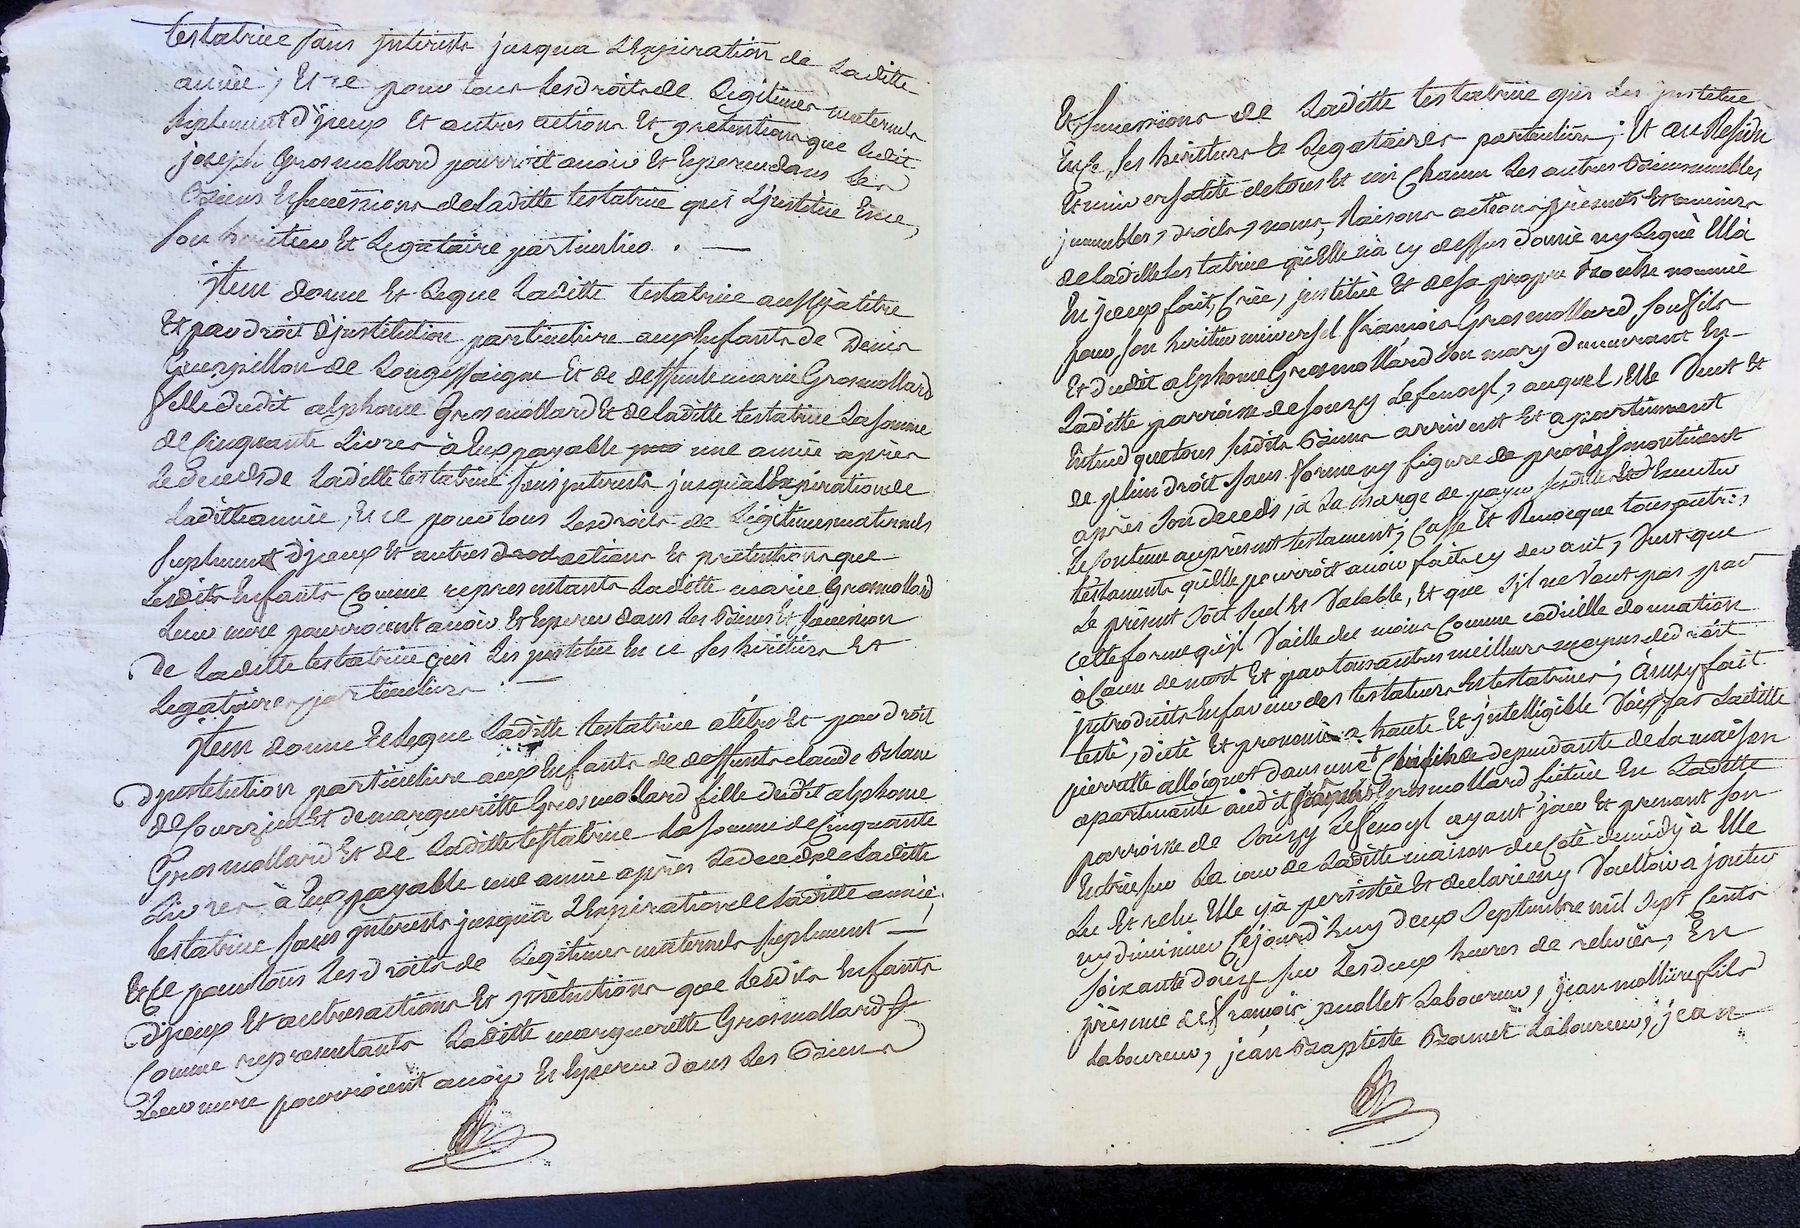 testatrice sans interests jusqua Lexpiration de Laditte
année ; Et ce pour tous Les droits de Legitimes maternels
suplement d'jceux Et autres actions Et pretentions que Ledit
joseph Grosmollard pourroit avoir Et Esperer dans Les
Biens Et successions de Laditte testatrice qui L'jnstitüe En ce,
son heritier Et Legataire particulier . —
jtem donne Et Legue Laditte testatrice aussy à titre
Et par droit d'jnstitution particuliere aux Enfants de Denis
Guerpillon de Longessaigne Et de deffunte marie Grosmollard
fille dudit alphonse Grosmollard Et de Laditte testatrice La somme
de Cinquante Livres à Eux payable une année après
Le deceds de Laditte testatrice sans jnterests jusqu'à L'Expiration de
Laditte année, Et ce pour tous Les droits de Légitimes maternels
suplement d'jceux Et autres actions Et prétentions que
Lesdits Enfants Comme representants Laditte marie Grosmollard
Leur mere pourroient avoir Et Esperer dans Les Biens Et succession
de Laditte testatrice qui Les jnstitue En ce ses héritiers Et
Legataires particuliers . —
jtem donne Et Legue Laditte testatrice a titre Et par droit
d'jnstitution particuliere aux Enfants de deffunts claude Blanc
de Sourzieu Et de margueritte Grosmollard fille dudit alphonse
Grosmollard Et de Laditte testatrice La somme de Cinquante
Livres à Eux payable une année après Le deceds de Laditte
testatrice sans jnterests jusqu'à L'Expiration de Laditte année,
Et Ce pour tous Les droits de Legitimes maternels suplement —
d'jceux Et autres actions Et prétentions que Lesdits Enfants
Comme representants Laditte margueritte Grosmollard
Leur mere pourroient avoir Et Esperer dans Les Biens
Et successions de Laditte testatrice qui Les jnstitue
En ce, ses héritiers Et Legataires particuliers ; Et au Residu
Et universalité de tous Et un Chacun Les autres Biens meubles
jmmeubles, droits, noms, Raisons actions présents Et avenirs
de Laditte testatrice qu'Elle n'a cy dessus donné ny Legué Ell'à
En jceux fait, Crée, jnstitüe Et de sa propre Bouche nommé
pour son heritier universel François Grosmollard, son fils
Et dudit alphonse Grosmollard son mary demeurant En —
Laditte parroisse de souzy Lefenoyl, auquel, Elle Veut Et
Entend que tous sesdits Biens arrivent Et apartiennent
de plein droit sans forme ny figure de procès jncontinent
après son deceds, à La charge de payer sesdittes Et d'Executer
Le Contenu au présent testament ; Casse Et Revocque tous autres
testaments qu'Elle pourroit avoir faits cy devant, Veut que
Le présent soit seul Et Valable, Et que s'jl ne Vaut pas par
cette forme qu'jl Vaille du moins Comme codicille donnation
à Cause de mort Et par tous autres meilleurs moyens de droit
jntroduits En faveur des testateurs Et testatrices ; Ainsy fait
testé, dicté Et prononcé a haute Et jntelligible Voix par Laditte
pierrette allognet dans une Cuisine dependante de La maison
apartenante audit François Grosmollard située En Laditte
parroisse de souzy Lefenoyl ayant jour Et prenant son
Entrée sur La cour de Laditte maison du coté de midy à Elle
Lu Et relu Elle y à persistée Et declarée ny Vouloir a jouter
ny diminuer Cejourd'huy deux septembre mil sept Cents
soixante douze sur Les deux heures de relevée, En
présence de François puollet Laboureur, jean mollieres fils
Laboureur, jean Baptiste Bramet Laboureur, jean